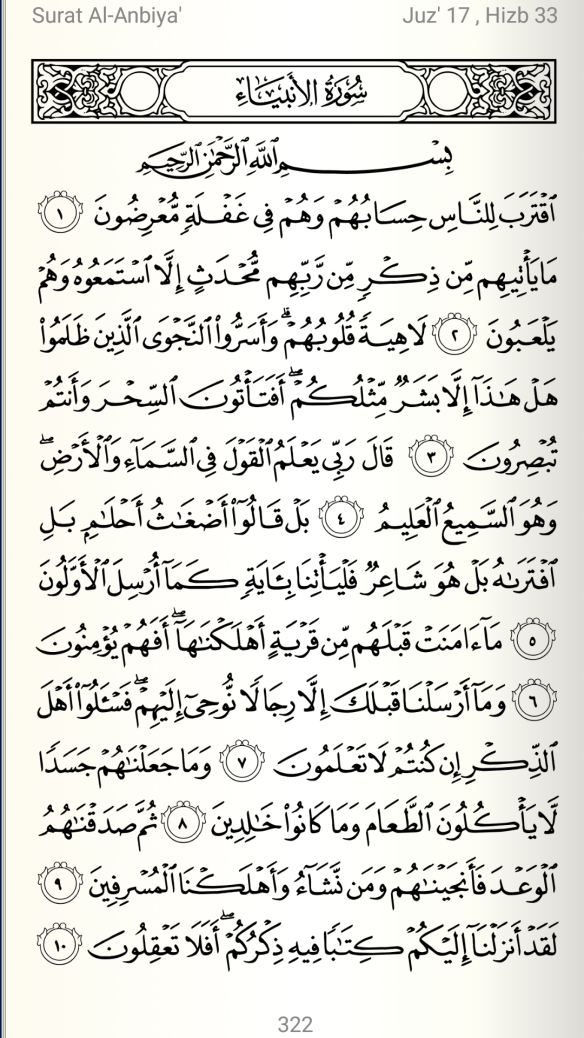 Surat Al-Anbiya'
Juz' 17 , Hizb 33
سُورَةُ الأَنبِيَاءِ
بِسْمِ ٱللَّهِ ٱلرَّحْمَٰنِ ٱلرَّحِيمِ
ٱقْتَرَبَ لِلنَّاسِ حِسَابُهُمْ وَهُمْ فِى غَفْلَةٍ مُّعْرِضُونَ ١
مَا يَأْتِيهِم مِّن ذِكْرٍ مِّن رَّبِّهِم مُّحْدَثٍ إِلَّا ٱسْتَمَعُوهُ وَهُمْ
يَلْعَبُونَ ٢ لَاهِيَةً قُلُوبُهُمْ ۗ وَأَسَرُّوا۟ ٱلنَّجْوَى ٱلَّذِينَ ظَلَمُوا۟
هَلْ هَـٰذَآ إِلَّا بَشَرٌ مِّثْلُكُمْ ۖ أَفَتَأْتُونَ ٱلسِّحْرَ وَأَنتُمْ
تُبْصِرُونَ ٣ قَالَ رَبِّى يَعْلَمُ ٱلْقَوْلَ فِى ٱلسَّمَآءِ وَٱلْأَرْضِ ۖ
وَهُوَ ٱلسَّمِيعُ ٱلْعَلِيمُ ٤ بَلْ قَالُوٓا۟ أَضْغَـٰثُ أَحْلَـٰمٍۭ بَلِ
ٱفْتَرَىٰهُ بَلْ هُوَ شَاعِرٌ فَلْيَأْتِنَا بِـَٔايَةٍ كَمَآ أُرْسِلَ ٱلْأَوَّلُونَ
٥ مَآ ءَامَنَتْ قَبْلَهُم مِّن قَرْيَةٍ أَهْلَكْنَـٰهَآ ۖ أَفَهُمْ يُؤْمِنُونَ
٦ وَمَآ أَرْسَلْنَا قَبْلَكَ إِلَّا رِجَالًا نُّوحِىٓ إِلَيْهِمْ ۖ فَسْـَٔلُوٓا۟ أَهْلَ
ٱلذِّكْرِ إِن كُنتُمْ لَا تَعْلَمُونَ ٧ وَمَا جَعَلْنَـٰهُمْ جَسَدًا
لَّا يَأْكُلُونَ ٱلطَّعَامَ وَمَا كَانُوا۟ خَـٰلِدِينَ ٨ ثُمَّ صَدَقْنَـٰهُمُ
ٱلْوَعْدَ فَأَنجَيْنَـٰهُمْ وَمَن نَّشَآءُ وَأَهْلَكْنَا ٱلْمُسْرِفِينَ ٩
لَقَدْ أَنزَلْنَآ إِلَيْكُمْ كِتَـٰبًا فِيهِ ذِكْرُكُمْ ۖ أَفَلَا تَعْقِلُونَ ١٠
322